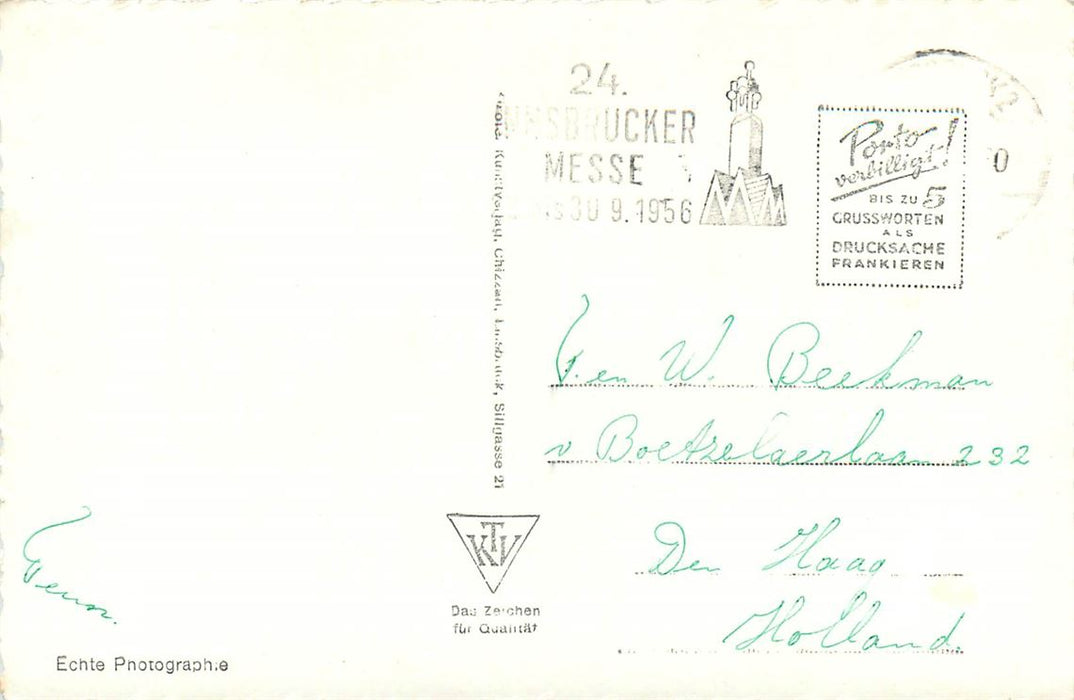 24.
INNSBRUCKER
MESSE
BIS 30 9.1956
Porto
verbilligt!
BIS ZU 5
GRUSSWORTEN
ALS
DRUCKSACHE
FRANKIEREN
Kunstverlag, Chizzali, Innsbruck, Sillgasse 21
T. en W. Beekman
v Boetzelaerlaan 232
Den Haag
Holland.
TKV
Das Zeichen
für Qualität
Echte Photographie